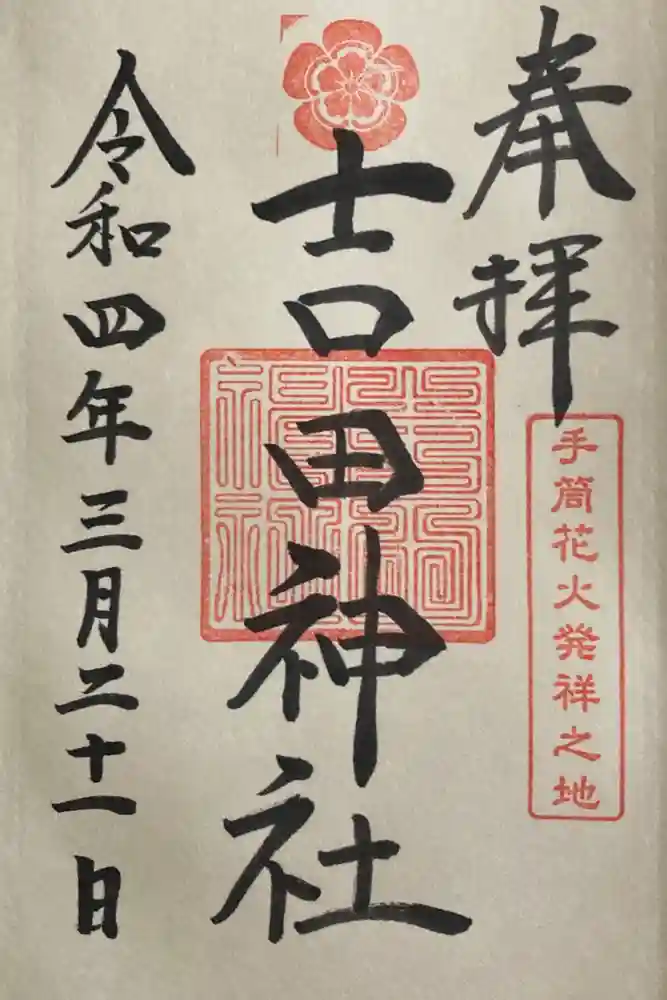 奉拝
手筒花火発祥之地
吉田神社
令和四年三月二十一日